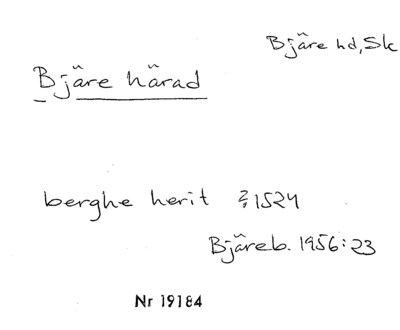 Bjäre hd, Sk
Bjäre härad
berghe herit 1524
Bjäreb. 1956:23
Nr 19184